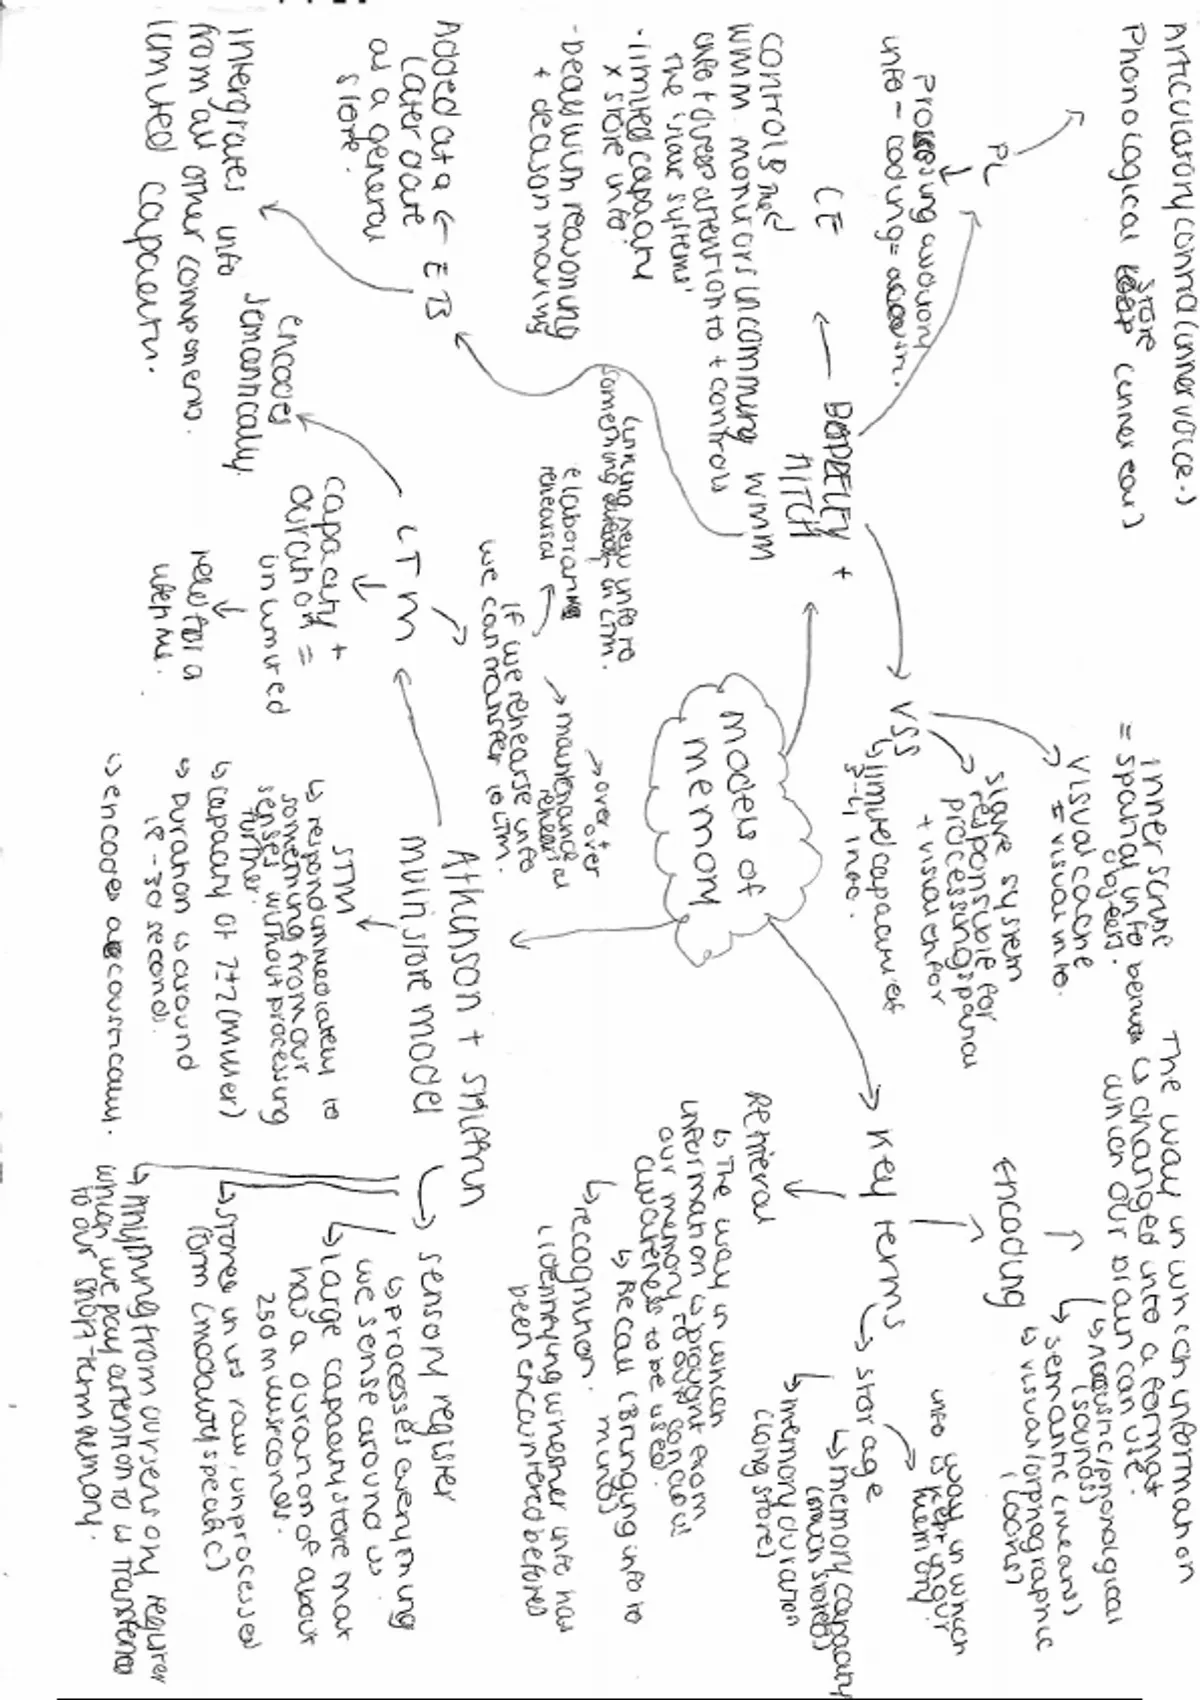 Models of
memory
BADDELEY +
HITCH
WMM
PL
Articulatory control (inner voice.)
Phonological store (inner ear)
Processing auditory
info - coding =
CE
controls the
WMM monitors incomming
info + direct attention to + controls
the 'slave systems'
· limited capacity
x store info.
- Deals with reasoning
+ decision making
EB
Added at a
later date
as a general
store.
Intergrates info
from all other components.
limited capacity.
VSS
↳ limited capacity of
3-4 info.
slave system
responsible for
processing spatial
+ visual infor
visual cache
= visual info.
inner scribe
= spatial info between
objects.
Key terms
Encoding
The way in which information
is changed into a format
which our brain can use.
↳ acoustic/phonological
(sounds)
↳ semantic (means)
↳ visual/orphographic
(looks)
↳ storage
way in which
info is kept in our
memory
↳ memory capacity
(much stored)
↳ memory duration
(long store)
Retrieval
↳ The way in which
information is brought from
our memory to our concious
awareness to be used.
↳ Recall (Bringing info to
mind)
↳ recognition.
(identifying whether info has
been encountered before)
Atkinson + Shiffrin
multi store model
sensory register
↳ processes everything
we sense around us
↳ large capacity store that
has a duration of about
250 milliseconds.
↳ stores in its raw, unprocessed
form (modality specific)
↳ Anything from our sensory register
which we pay attention to is transferred
to our short-term memory.
STM
↳ respond immediately to
something from our
senses without processing
further.
↳ capacity of 7±2 (Miller)
↳ Duration is around
18-30 seconds.
↳ encodes acoustically.
LTM
encodes
semantically
capacity +
duration =
unlimited
held for a
lifetime.
If we rehearse info
we can transfer to LTM.
maintenance
rehearsal
→ over +
over
elaborative
rehearsal
Linking new info to
something in LTM.